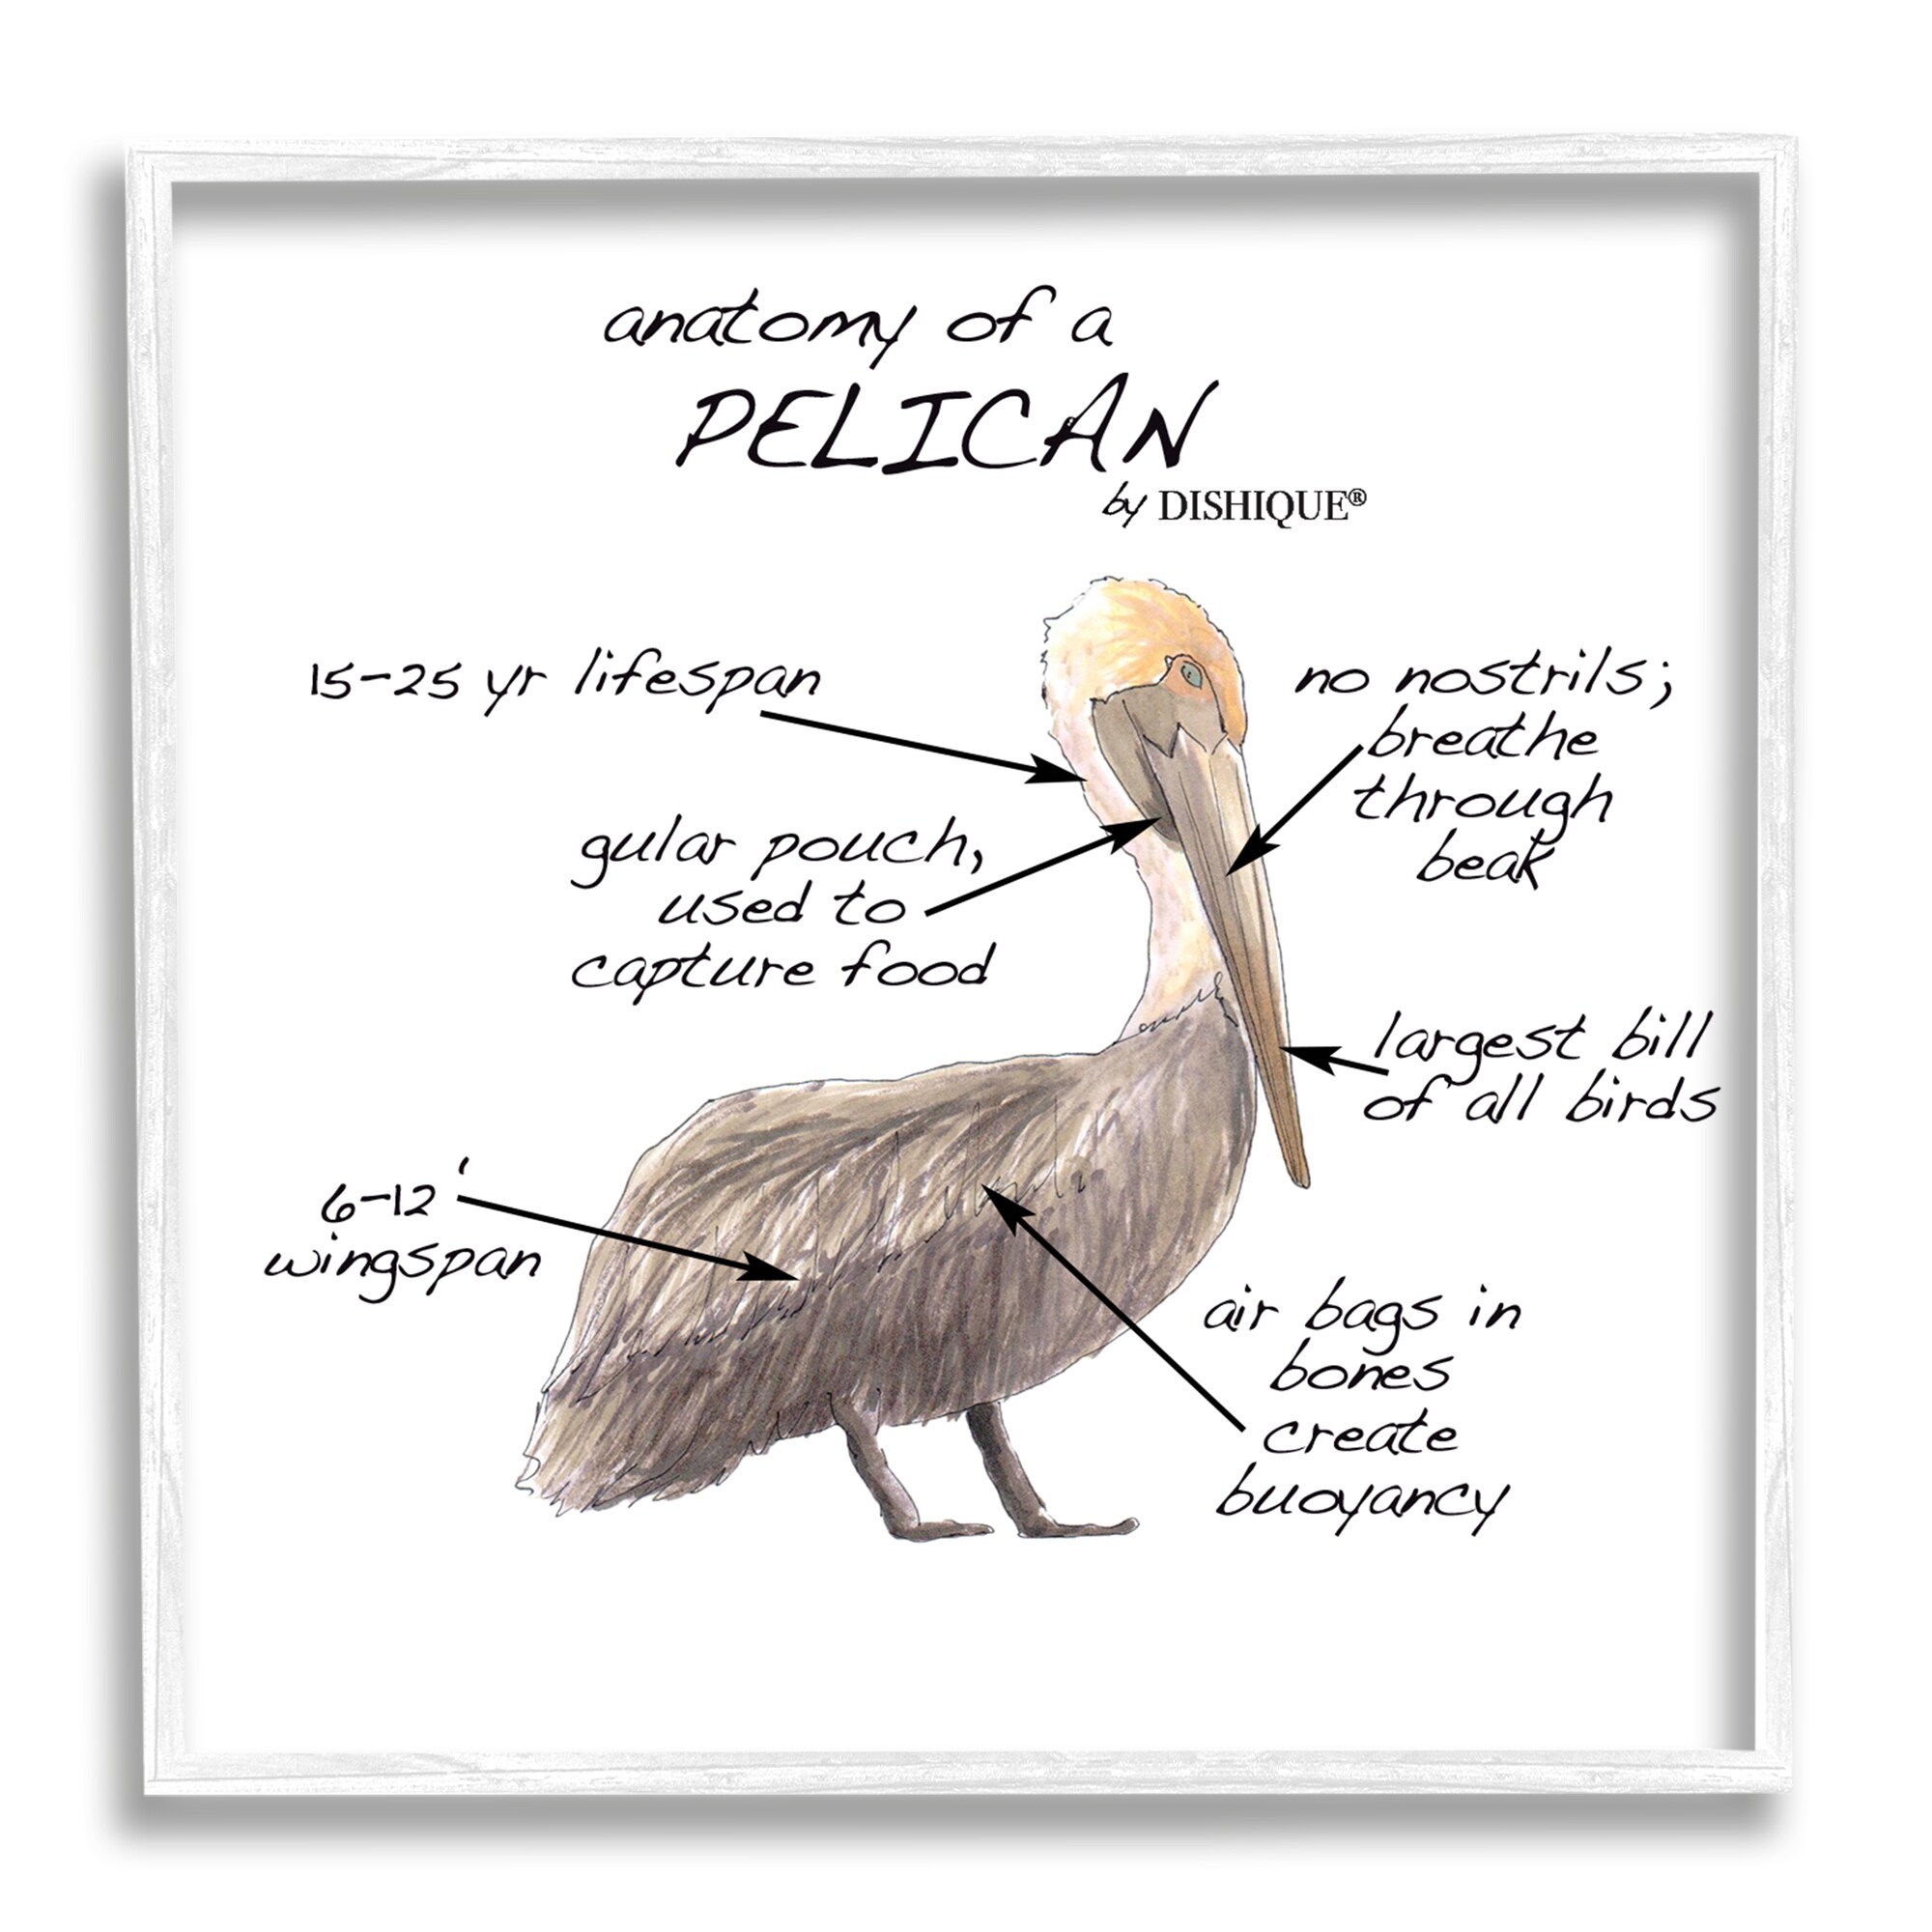 anatomy of a
PELICAN
by DISHIQUE®
15-25 yr lifespan
no nostrils;
breathe
through
beak
gular pouch,
used to
capture food
largest bill
of all birds
6-12'
wingspan
air bags in
bones
create
buoyancy